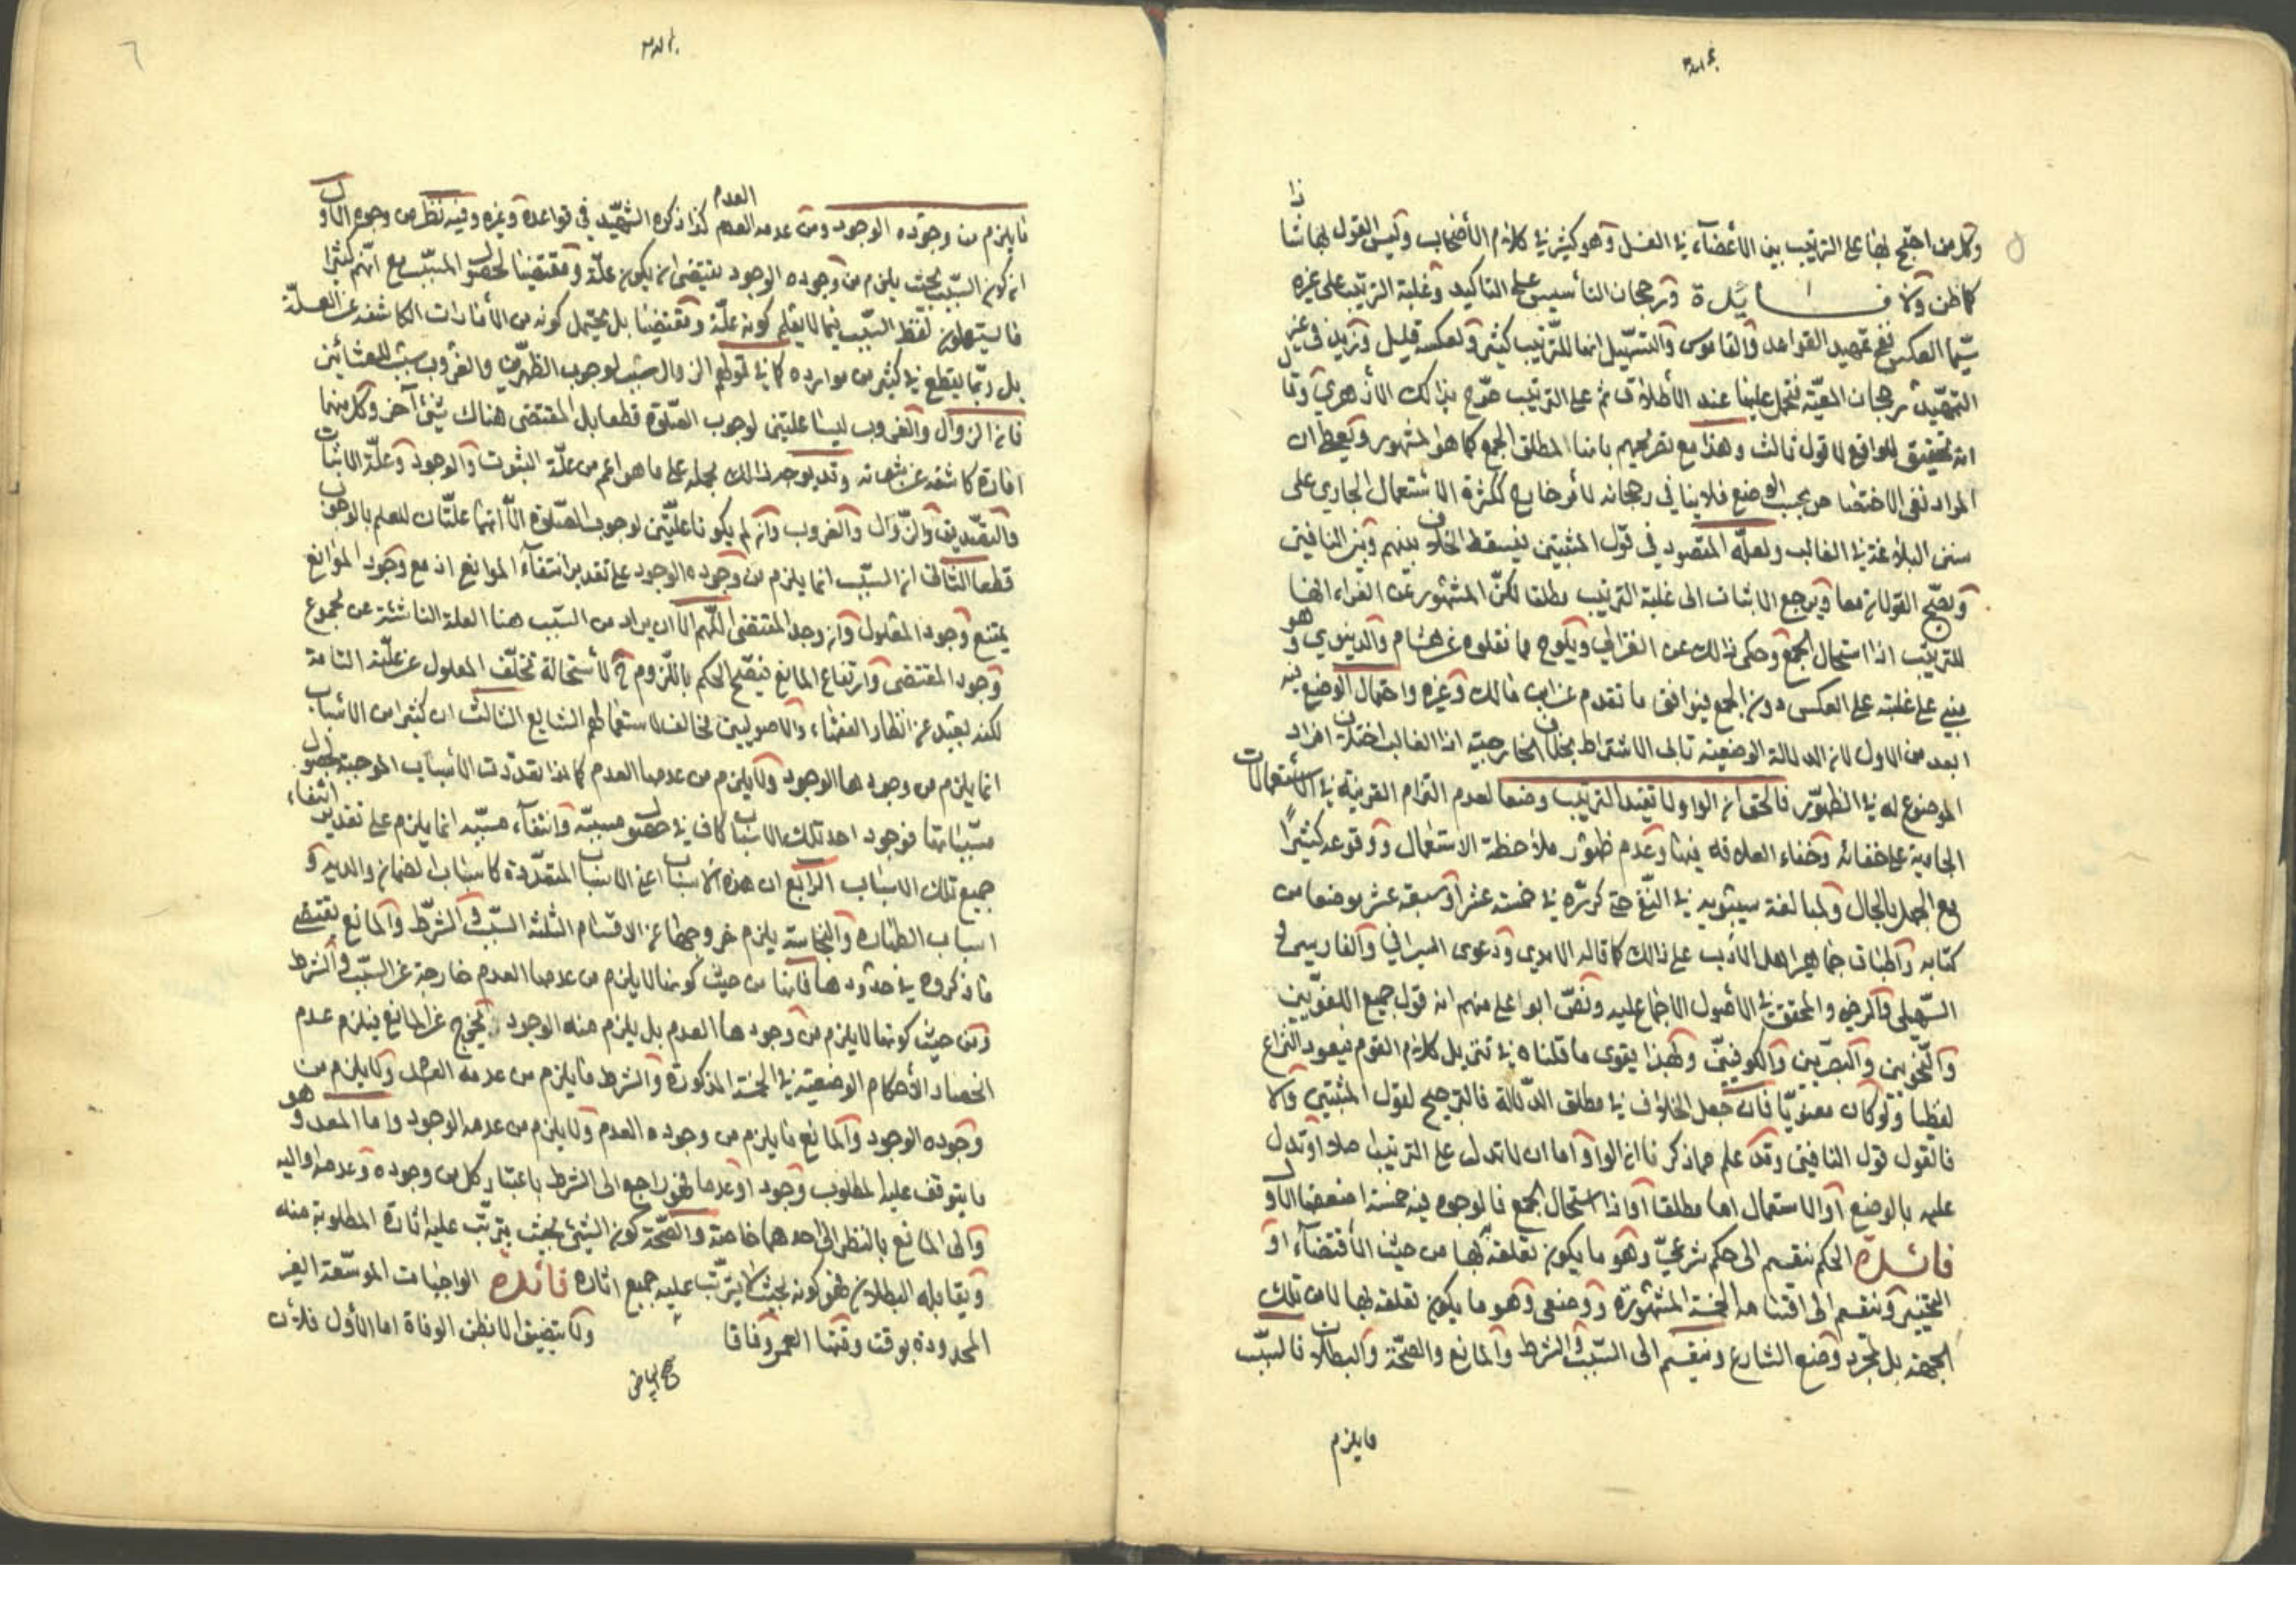 وكل من احتج بها على الترتيب بين الأعضاء في الغسل وهو كثير في كلام الأصحاب وليس القول بها شاذا
كما ظن ولا فايدة وترجحان التأسيس على التاكيد وغلبة الترتيب على غيره
سيّما العكس ففي تمهيد القواعد والقاموس والتسهيل انها للترتيب كثير ولعكسه قليل وتزيد في غير
التمهيد برجحان المعيّة فتحمل عليها عند الأطلاق ثم على الترتيب صرّح بذالك الأزهري وقا
انه تحقيق للواقع لا قول ثالث وهذا مع تصريحهم بانها لمطلق الجمع كما هو المشهور ويعطى ان
المراد نفى الاختصاص بحسب الوضع فلا ينافي رجحانه لأمر خارج ككثرة الاستعمال الجاري على
سنن البلاغة في الغالب ولعلّه المقصود في قول المثبتين فيسقط الخلاف بينهم وبين النافين
ويصحّ القولان معا ويرجع الاثبات الى غلبة الترتيب مطلقا لكنّ المشهور عن الفراء انها
للترتيب اذا استحال الجمع وحكى ذالك عن الغزالي ويلوح مما نقلوه عن هشام والدينوري وهو
مبني على غلبته على العكس دون الجمع فيوافق ما تقدم عن ابن مالك وغيره واحتمال الوضع فيه
ابعد من الاول لان الدلالة الوضعية تابى الاشتراط بخلاف الخارجية اذا الغالب اختلاف افراد
الموضوع له في الظهور فالحق ان الواو لا تفيد الترتيب وضعا لعدم التزام القرينة في الاستعمالات
الجارية على خفائه وخفاء العلاقة فيها وعدم ظهور ملاحظة الاستعمال ووقوعه كثيراً
مع الجهل بالحال ولمبالغة سيبويه في النفي حتى كرّره في خمسة عشر او سبعة عشر موضعا من
كتابه واطباق جماهير اهل الادب على ذالك كما قاله الامدي ودعوى السيرافي والفارسي و
السهيلي والرضي والمحقق في الأصول الاجماع عليه ونصّ ابو علي منهم انه قول جميع اللغويين
والنحويين والبصريين والكوفيين وبهذا يقوى ما قلناه في تنزيل كلام القوم فيعود النزاع
لفظيا ولو كان معنويّا فان جعل الخلاف في مطلق الدّلالة فالترجيح لقول المثبتين والا
فالقول قول النافين وقد علم مما ذكرنا ان الواو اما ان لا تدل على الترتيب اصلا او تدل
عليه بالوضع او الاستعمال اما مطلقا او اذا استحال الجمع فالوجوه فيه خمسة اضعفها الأول
فائدة الحكم ينقسم الى حكم شرعيّ وهو ما يكون تعلقه بها من حيث الأقتضاء او
التخيير وينقسم الى اقسامه الخمسة المشهورة ووضعي وهو ما يكون تعلقه بها لا من تلك
الجهة بل لمجرد وضع الشارع وينقسم الى السّبب والشرط والمانع والصحّة والبطلان فالسّبب
ما يلزم
ما يلزم من وجوده الوجود ومن عدمه العدم كذا ذكره الشهيد في قواعده وغيره وفيه نظر من وجوه الأول
ان كون السّبب بحيث يلزم من وجوده الوجود يقتضى ان يكون علّة ومقتضيا لحصول المسبّب مع انّهم كثيرا
ما يستعملون لفظ السّبب فيما لا يعلم كونه علّة ومقتضيا بل يحتمل كونه من الأمارات الكاشفه عن العلّة
بل ربّما يقطع في كثير من موارده كما في قولهم الزوال سبب لوجوب الظهرين والغروب سبب للعشائين
فان الزوال والغروب ليسا علتين لوجوب الصّلوة قطعا بل المقتضى هناك شئ آخر وكل منهما
امارة كاشفه عن وقد يوجه ذالك بحمله على ما هو اعم من علّة الثبوت والوجود وعلّة الاثبات
والتصديق والزّوال والغروب وان لم يكونا علّتين لوجوب الصّلوة الّا انهما علّتان للعلم بالوجوب
قطعا الثّانى ان السّبب انما يلزم من وجوده الوجود على تقدير انتفاء الموانع اذ مع وجود الموانع
يمتنع وجود المعلول وان وجد المقتضى اللّهم الّا ان يراد من السّبب هنا العلة الناشئة عن مجموع
وجود المقتضى وارتفاع المانع فيصّح الحكم باللّزوم ح لأستحالة تخلّف المعلول عن علّته التامة
لكنه بعيد عن انظار الفقهاء والاصوليين مخالف لاستعمالهم الشايع الثالث ان كثيرا من الأسباب
انما يلزم من وجودها الوجود ولا يلزم من عدمها العدم كما اذا تعدّدت الأسباب الموجبة لحصول
مسبّباتها فوجود احد تلك الاسباب كاف في حصول مسببه وانتفاء مسبّبه انما يلزم على تقدير انتفاء
جميع تلك الاسباب الرابع ان هذه الأسباب اعنى الاسباب المتعدّدة كاسباب الضمان والدين و
اسباب الطهارة والنجاسة يلزم خروجها عن الاقسام الثلثة السّبب والشّرط والمانع بمقتضى
ما ذكروه في حدودها فانها من حيث كونها لا يلزم من عدمها العدم خارجة عن السّبب والشرط
ومن حيث كونها لا يلزم من وجودها العدم بل يلزم منه الوجود يخرج عن المانع فيلزم عدم
انحصار الأحكام الوضعية في الخمسة المذكورة والشرط ما يلزم من عدمه العدم ولا يلزم من
وجوده الوجود والمانع ما يلزم من وجوده العدم ولا يلزم من عدمه الوجود واما المعد وهو
ما يتوقف عليه المطلوب وجودا وعدما فهو راجع الى الشرط باعتبار كل من وجوده وعدمه او اليه
والى المانع بالنظر الى احدهما خاصة والصّحّة كون الشئ بحيث يترتّب عليه اثاره المطلوبة منه
ويقابله البطلان فهو كونه بحيث لا يترتّب عليه جميع اثاره فائدة الواجبات الموسّعة الغير
المحدودة بوقت وقتها العمر وفاقا ولا يتضيق الا بظن الوفاة اما الأول فلأن